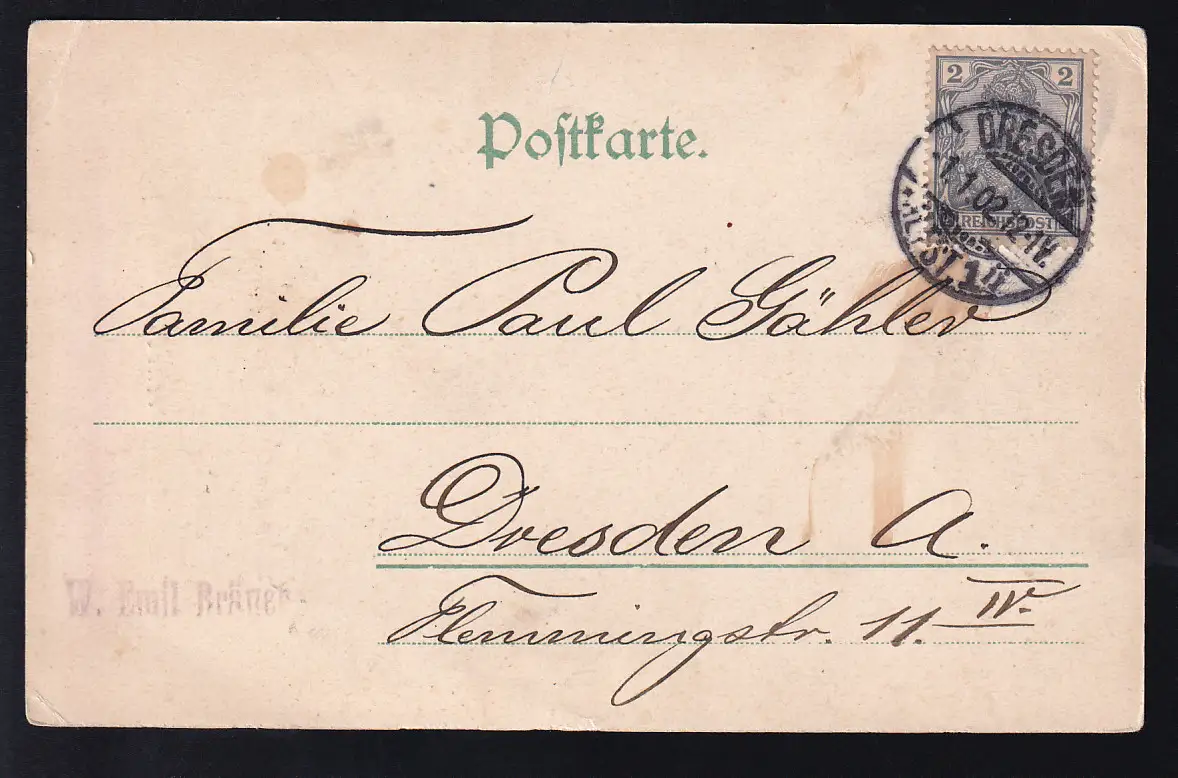 Postkarte.
2 2
DRESDEN
1.1.02.12-1V.
REICHSPOST
ALTST. 1
Familie Paul Gähler
Dresden A.
W. Emil
Flemmingstr. 11. IV.